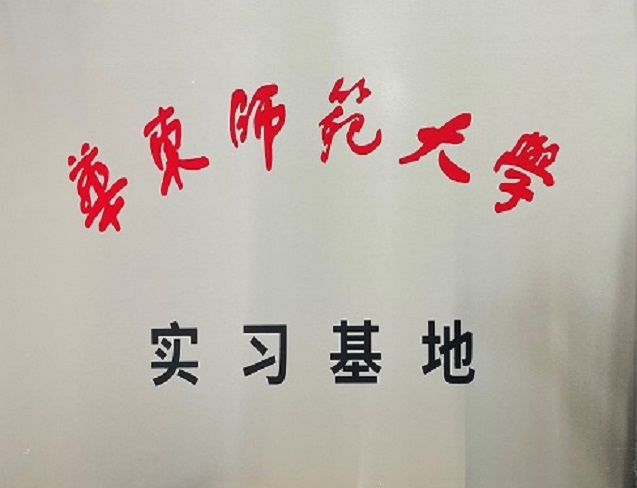 華東师範大學
实习基地